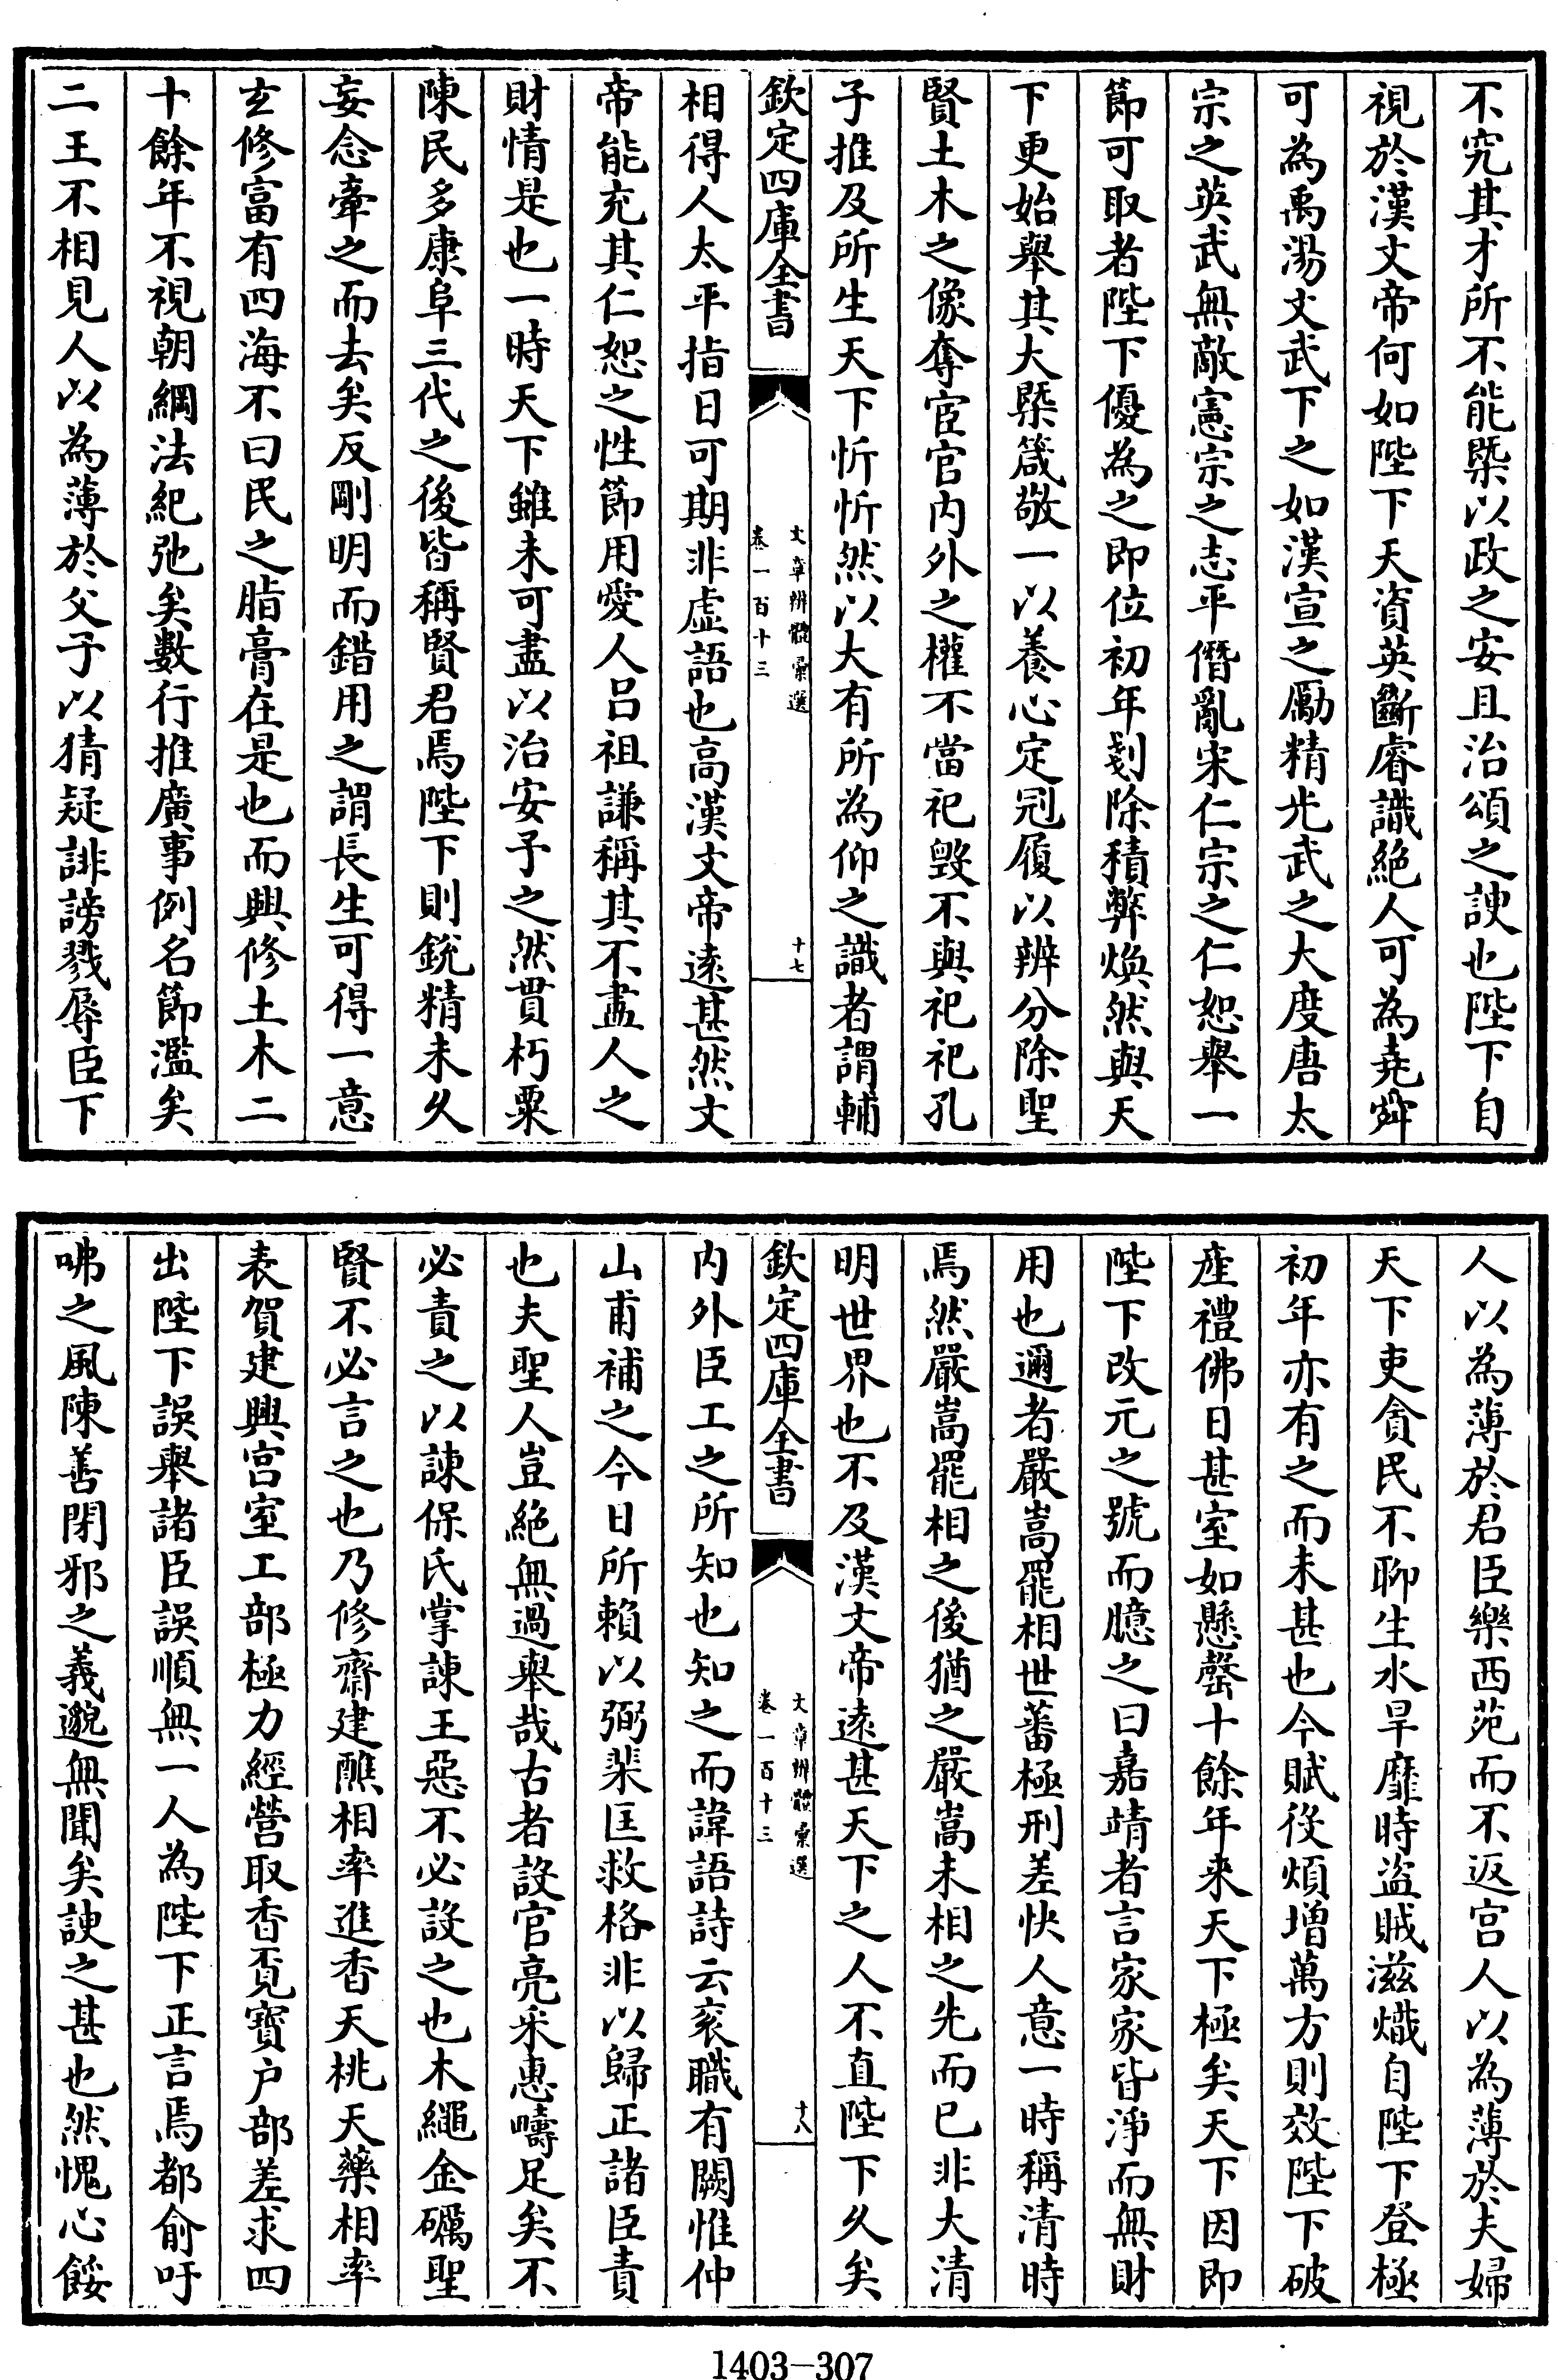 不究其才所不能槩以政之安且治頌之諛也陛下自
視於漢文帝何如陛下天資英斷睿識絶人可為堯舜
可為禹湯文武下之如漢宣之勵精光武之大度唐太
宗之英武無敵憲宗之志平僭亂宋仁宗之仁恕舉一
節可取者陛下優為之即位初年剗除積弊煥然與天
下更始舉其大槩箴敬一以養心定冠履以辨分除聖
賢土木之像奪宦官内外之權不當祀毀不與祀祀孔
子推及所生天下忻忻然以大有所為仰之識者謂輔
欽定四庫全書
文章辨體彙選
卷一百十三
十七
相得人太平指日可期非虛語也高漢文帝遠甚然文
帝能充其仁恕之性節用愛人吕祖謙稱其不盡人之
財情是也一時天下雖未可盡以治安予之然貫朽粟
陳民多康阜三代之後皆稱賢君焉陛下則銳精未久
妄念牽之而去矣反剛明而錯用之謂長生可得一意
玄修富有四海不曰民之脂膏在是也而興修土木二
十餘年不視朝綱法紀弛矣數行推廣事例名節濫矣
二王不相見人以為薄於父子以猜疑誹謗戮辱臣下
人以為薄於君臣樂西苑而不返宫人以為薄於夫婦
天下吏貪民不聊生水旱靡時盜賊滋熾自陛下登極
初年亦有之而未甚也今賦役煩增萬方則效陛下破
産禮佛日甚室如懸罄十餘年来天下極矣天下因即
陛下改元之號而臆之曰嘉靖者言家家皆淨而無財
用也邇者嚴嵩罷相世蕃極刑差快人意一時稱清時
焉然嚴嵩罷相之後猶之嚴嵩未相之先而已非大清
明世界也不及漢文帝遠甚天下之人不直陛下久矣
欽定四庫全書
文章辨體彙選
卷一百十三
十八
内外臣工之所知也知之而諱語詩云衮職有闕惟仲
山甫補之今日所賴以弼棐匡救格非以歸正諸臣責
也夫聖人豈絶無過舉哉古者設官亮采惠疇足矣不
必責之以諫保氏掌諫王惡不必設之也木繩金礪聖
賢不必言之也乃修齋建醮相率進香天桃天藥相率
表賀建興宫室工部極力經營取香覔寶户部差求四
出陛下誤舉諸臣誤順無一人為陛下正言焉都俞吁
咈之風陳善閉邪之義邈無聞矣諛之甚也然愧心餒
1403—307